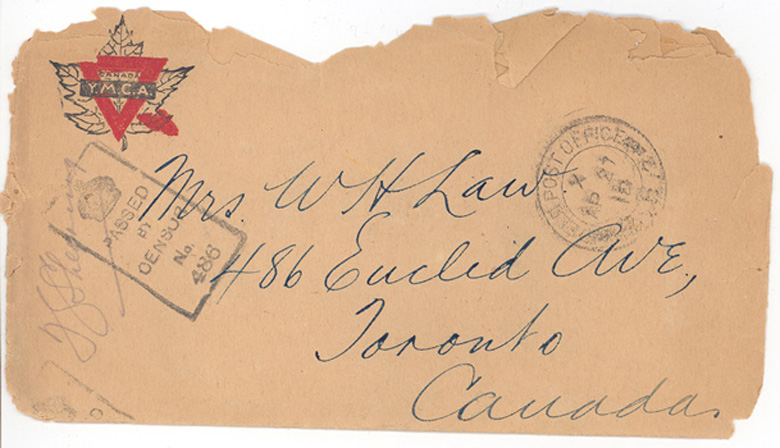 CANADA
Y.M.C.A.
PASSED
BY
CENSOR
No.
486
POST OFFICE
27
18
Mrs. W H Law
486 Euclid Ave,
Toronto
Canada.